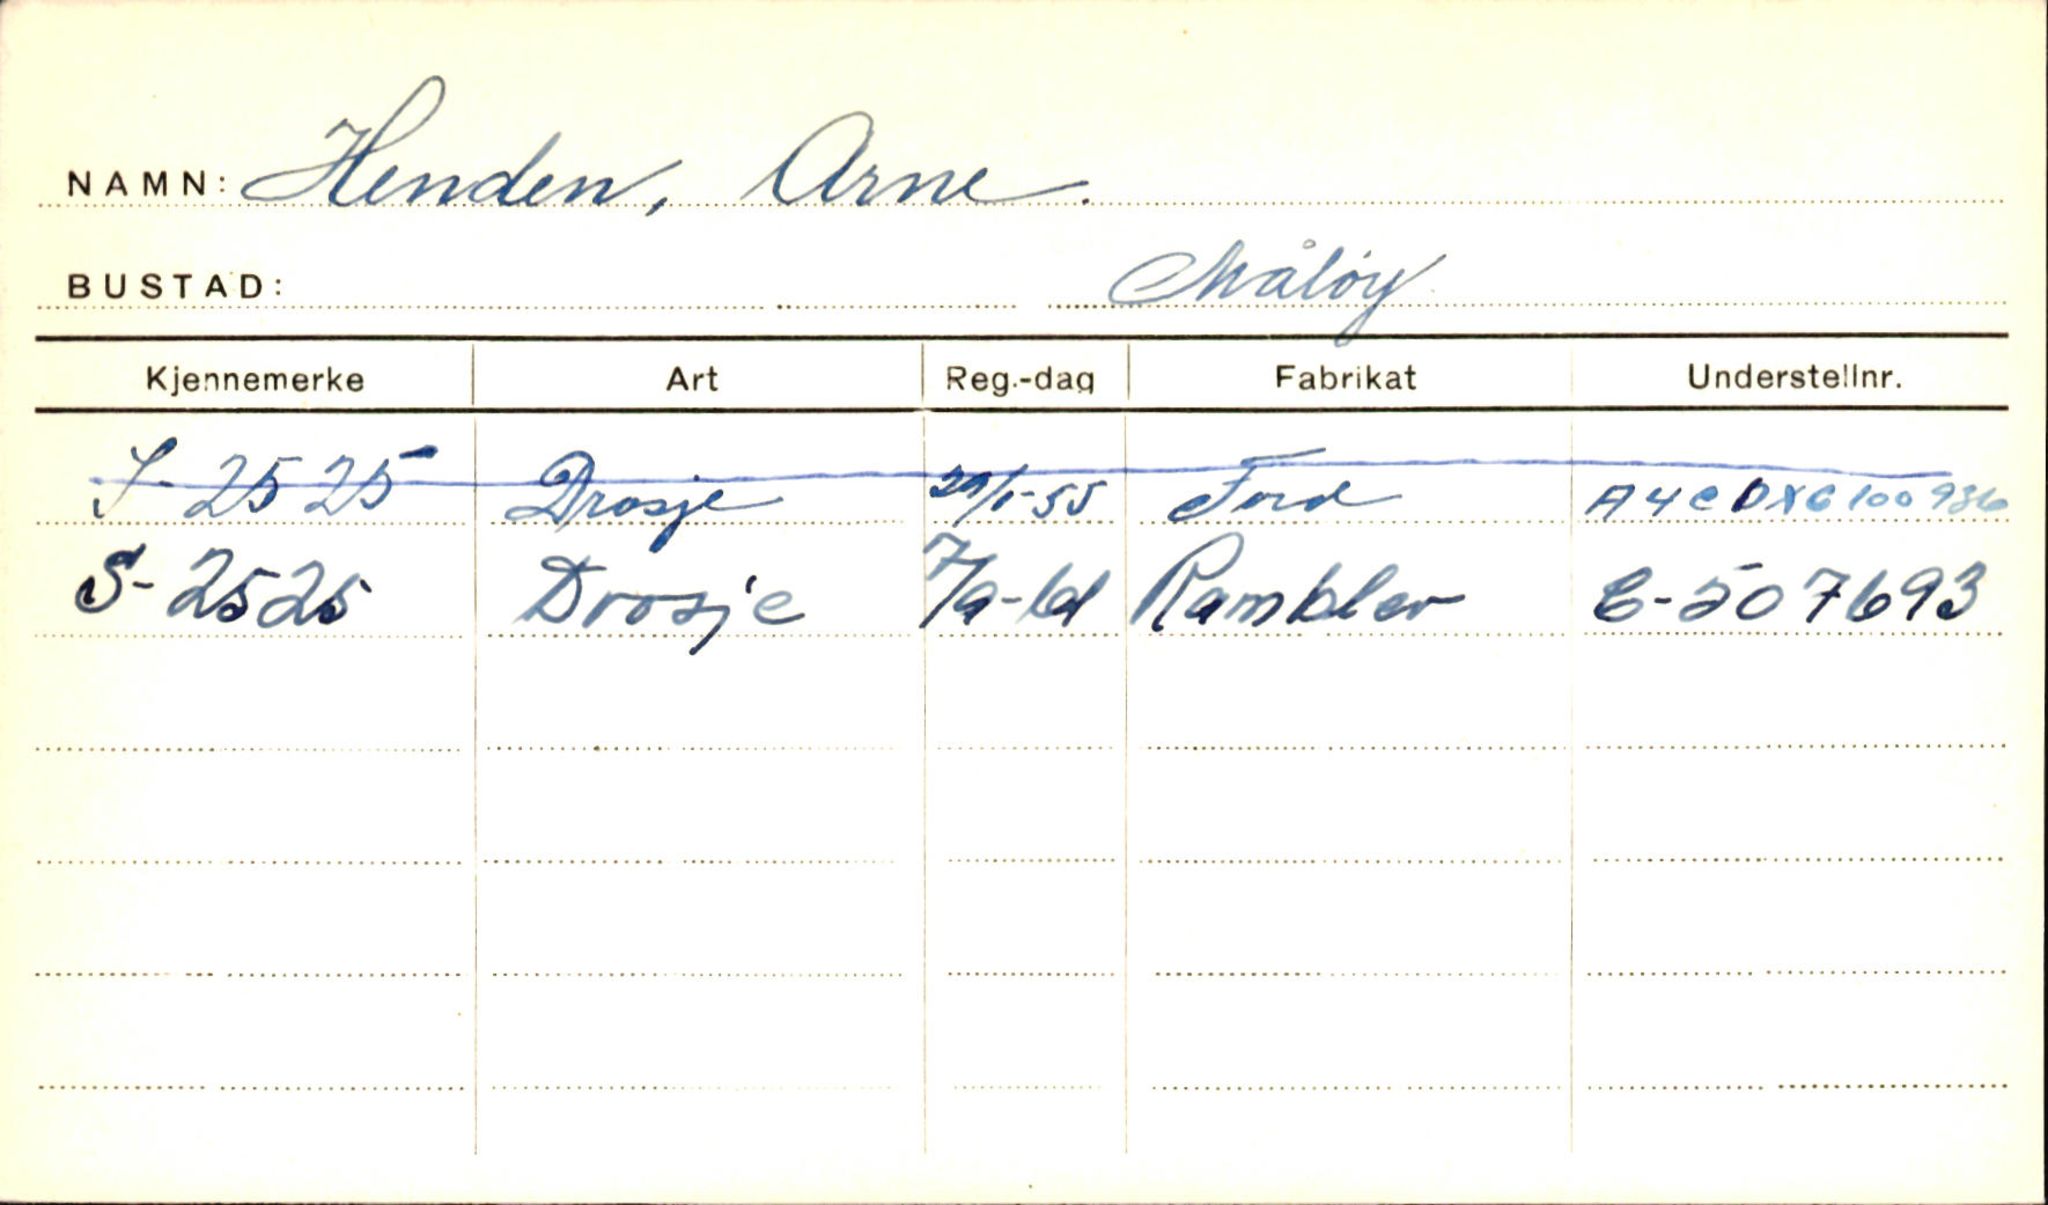 NAMN: Henden, Arne.
BUSTAD: Måløy
Kjennemerke Art Reg.-dag Fabrikat Understellnr.
S-2525 Drosje 29/1-55 Ford A4CDXG100936
S-2525 Drosje 7/9-61 Rambler E-507693